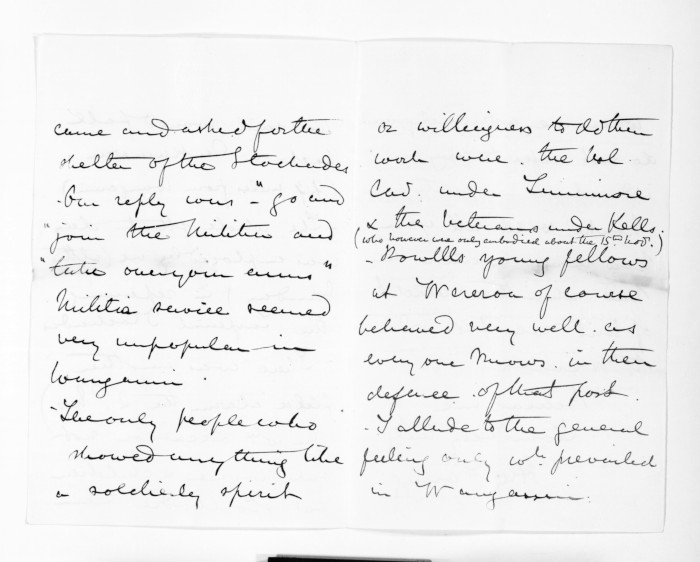 came and asked for the
shelter of the Stockades
Our reply was - "go and
"join the Militia and
"take over your arms"
Militia service seemed
very unpopular in
Wanganui.
The only people who
showed anything like
a soldierly spirit
or willingness to do their
work were the Vol.
Cav. under Finnimore
& the Veterans under Kells.
(who however was only embodied about the 15th Nov.)
- Powlls young fellows
at Wereroa of course
behaved very well as
every one knows in their
defence of that post.
- I allude to the general
feeling only wh. prevailed
in Wanganui.